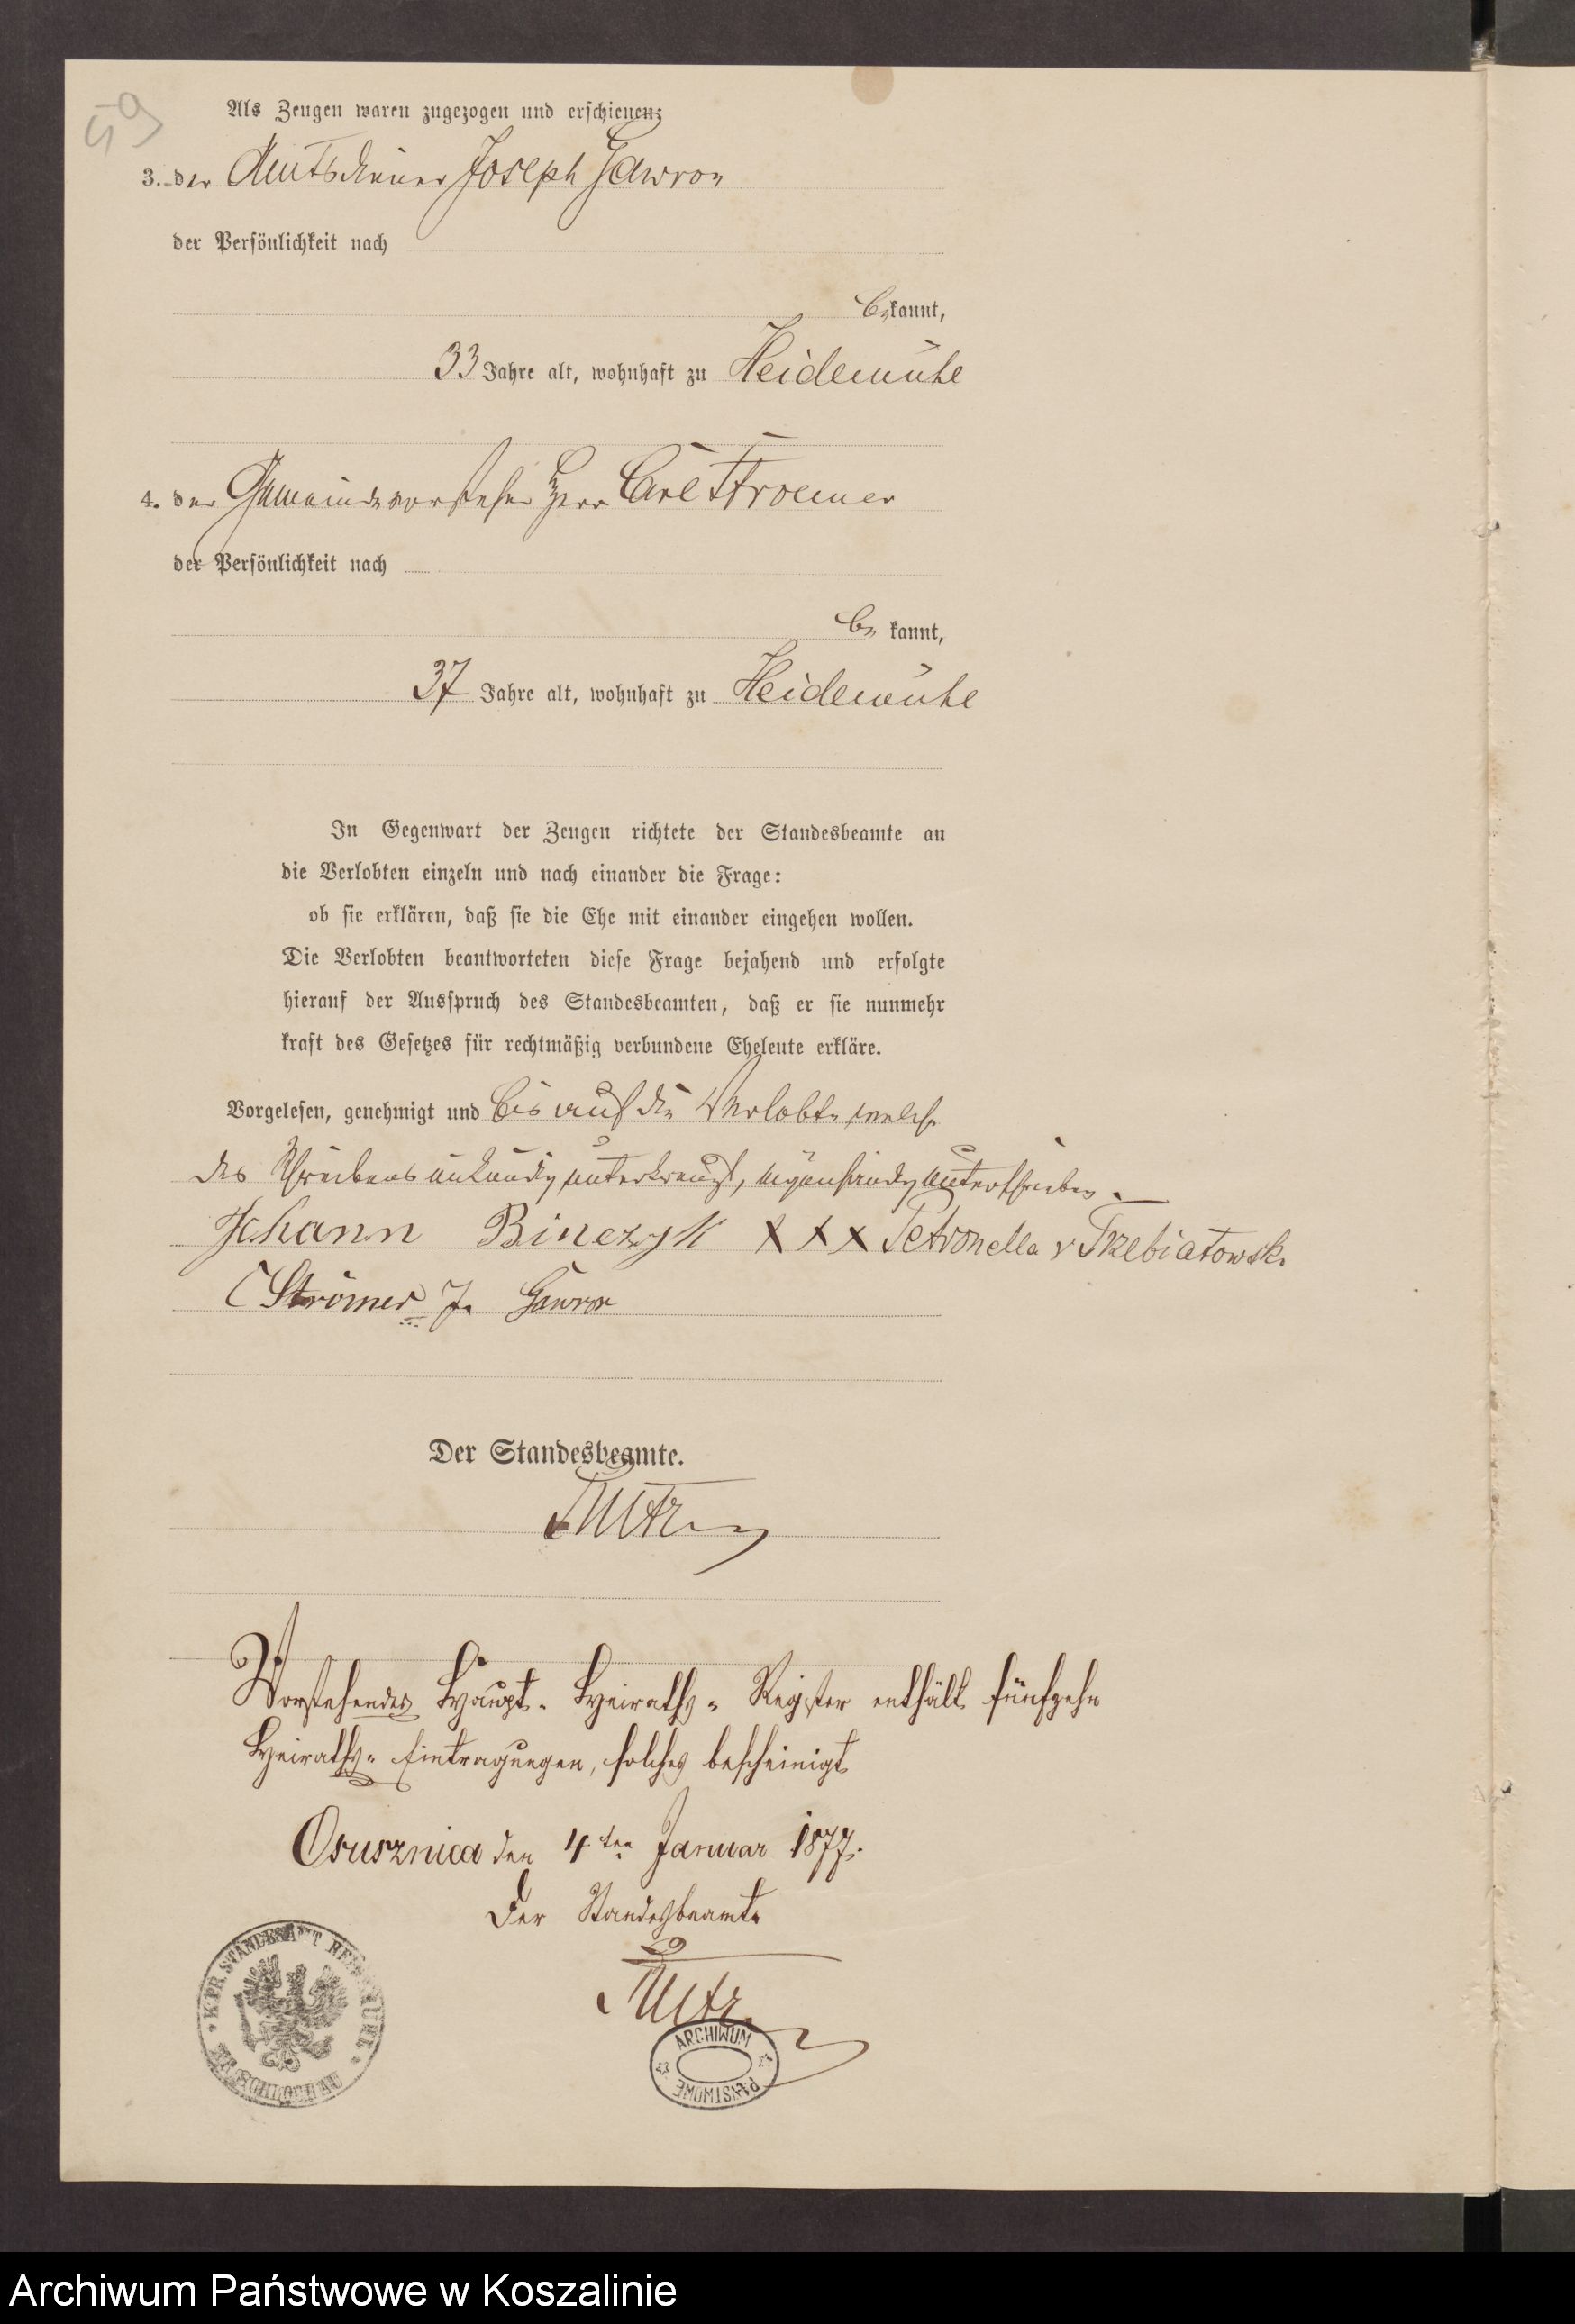 59
Als Zeugen waren zugezogen und erschienen:
3. der Amtsdiener Joseph Gawron
der Persönlichkeit nach
bekannt,
33 Jahre alt, wohnhaft zu Heidemühle
4. der Gemeindevorsteher Herr Carl Stroemer
der Persönlichkeit nach
be kannt,
37 Jahre alt, wohnhaft zu Heidemühle
In Gegenwart der Zeugen richtete der Standesbeamte an
die Verlobten einzeln und nach einander die Frage:
ob sie erklären, daß sie die Ehe mit einander eingehen wollen.
Die Verlobten beantworteten diese Frage bejahend und erfolgte
hierauf der Ausspruch des Standesbeamten, daß er sie nunmehr
kraft des Gesetzes für rechtmäßig verbundene Eheleute erkläre.
Vorgelesen, genehmigt und bis auf die Verlobte, welche
des Schreibens unkundig unterkreuzt, eigenhändig unterschrieben.
Johann Binczyk XXX Petronella v Trzebiatowsk.
C Strömer J. Gawron
Der Standesbeamte.
Vorstehendes Haupt-Heiraths-Register enthält fünfzehn
Heiraths-Eintragungen, solches bescheinigt
Osusznica den 4ten Januar 1877.
Der Standesbeamte
K. PR. STANDESAMT
KR. SCHLOCHAU
ARCHIWUM
PAŃSTWOWE
Archiwum Państwowe w Koszalinie